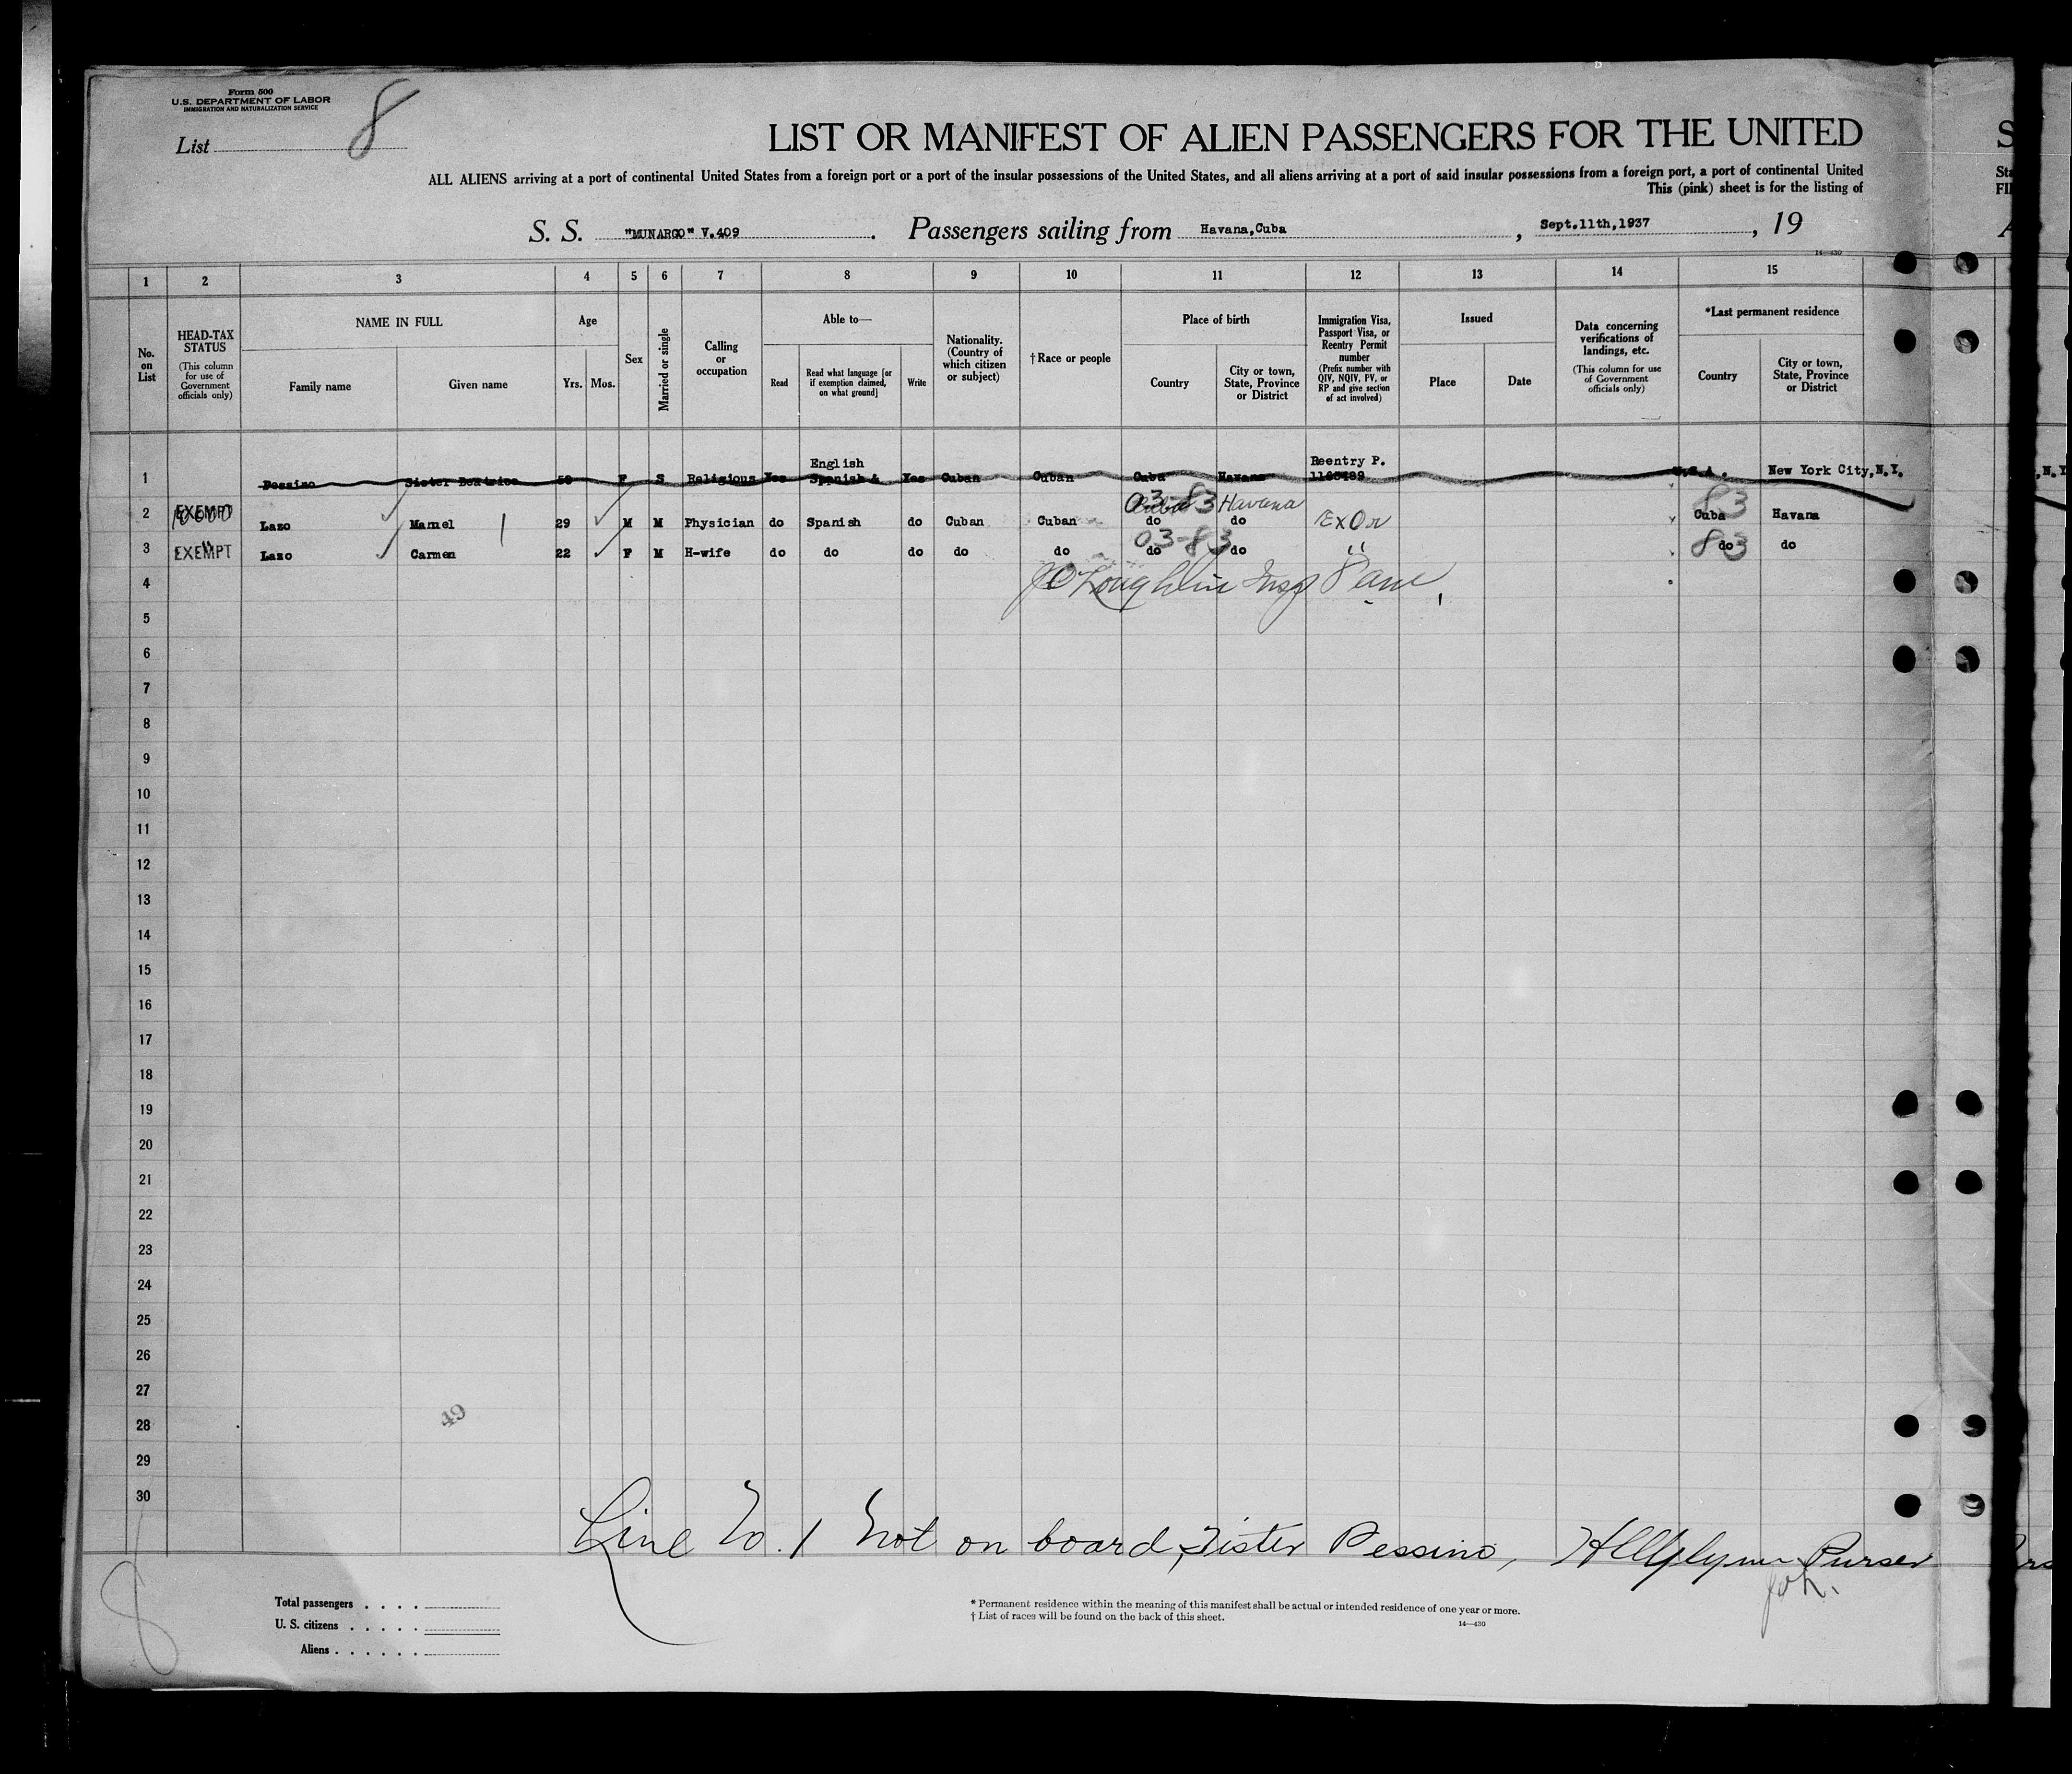 Form 500
U.S. DEPARTMENT OF LABOR
IMMIGRATION AND NATURALIZATION SERVICE
List 8
LIST OR MANIFEST OF ALIEN PASSENGERS FOR THE UNITED
ALL ALIENS arriving at a port of continental United States from a foreign port or a port of the insular possessions of the United States, and all aliens arriving at a port of said insular possessions from a foreign port, a port of continental United
This (pink) sheet is for the listing of
S. S. "MUNARGO" V.409. Passengers sailing from Havana,Cuba, Sept.11th,1937, 19
14—430
1 2 3 4 5 6 7 8 9 10 11 12 13 14 15
No. on List
HEAD-TAX STATUS (This column for use of Government officials only)
NAME IN FULL
Family name
Given name
Age
Yrs. Mos.
Sex
Married or single
Calling or occupation
Able to—
Read
Read what language [or if exemption claimed, on what ground]
Write
Nationality. (Country of which citizen or subject)
†Race or people
Place of birth
Country
City or town, State, Province or District
Immigration Visa, Passport Visa, or Reentry Permit number (Prefix number with QIV, NQIV, PV, or RP and give section of act involved)
Issued
Place
Date
Data concerning verifications of landings, etc. (This column for use of Government officials only)
*Last permanent residence
Country
City or town, State, Province or District
English Reentry P.
1 Pessino Sister Beatrice 50 F S Religious Yes Spanish & Yes Cuban Cuban Cuba Havana 1168489 U.S.A. New York City,N.Y.
03-83 Cuba Havana 83
2 EXEMPT Lazo Manuel 29 M M Physician do Spanish do Cuban Cuban do do Cuba Havana
03-83 83
3 EXEMPT Lazo Carmen 22 F M H-wife do do do do do do do " do do
4
5
6
7
8
9
10
11
12
13
14
15
16
17
18
19
20
21
22
23
24
25
26
27
28
49
29
30
Line No. 1 Not on board, Sister Pessino, Purser
8
Total passengers
U. S. citizens
Aliens
* Permanent residence within the meaning of this manifest shall be actual or intended residence of one year or more.
† List of races will be found on the back of this sheet.
14—430